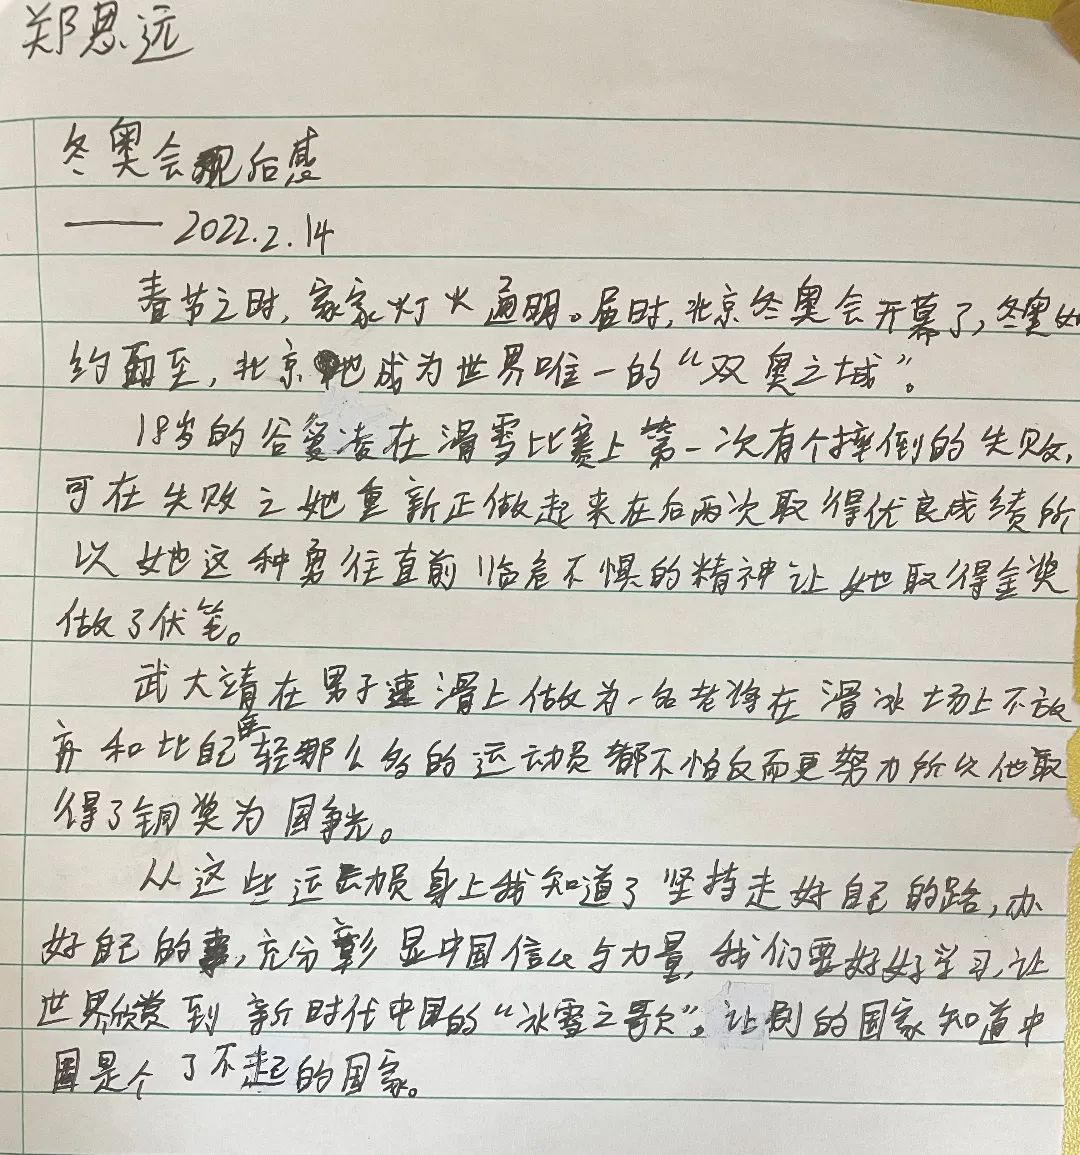 郑思远
冬奥会观后感
—— 2022.2.14
春节之时，家家灯火通明。届时，北京冬奥会开幕了，冬奥如
约而至，北京也成为世界唯一的“双奥之城”。
18岁的谷爱凌在滑雪比赛上第一次有个摔倒的失败，
可在失败之她重新正做起来在后两次取得优良成绩所
以她这种勇往直前临危不惧的精神让她取得金奖
做了伏笔。
武大靖在男子速滑上做为一名老将在滑冰场上不放
弃和比自己年轻那么多的运动员都不怕反而更努力所以他取
得了铜奖为国争光。
从这些运动员身上我知道了坚持走好自己的路，办
好自己的事，充分彰显中国信心与力量，我们要好好学习，让
世界欣赏到新时代中国的“冰雪之歌”，让别的国家知道中
国是个了不起的国家。